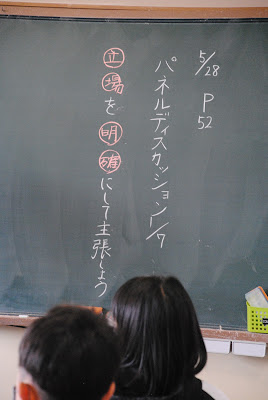 5/28
P
52
パネルディスカッション 1/7
立場を明確にして主張しよう